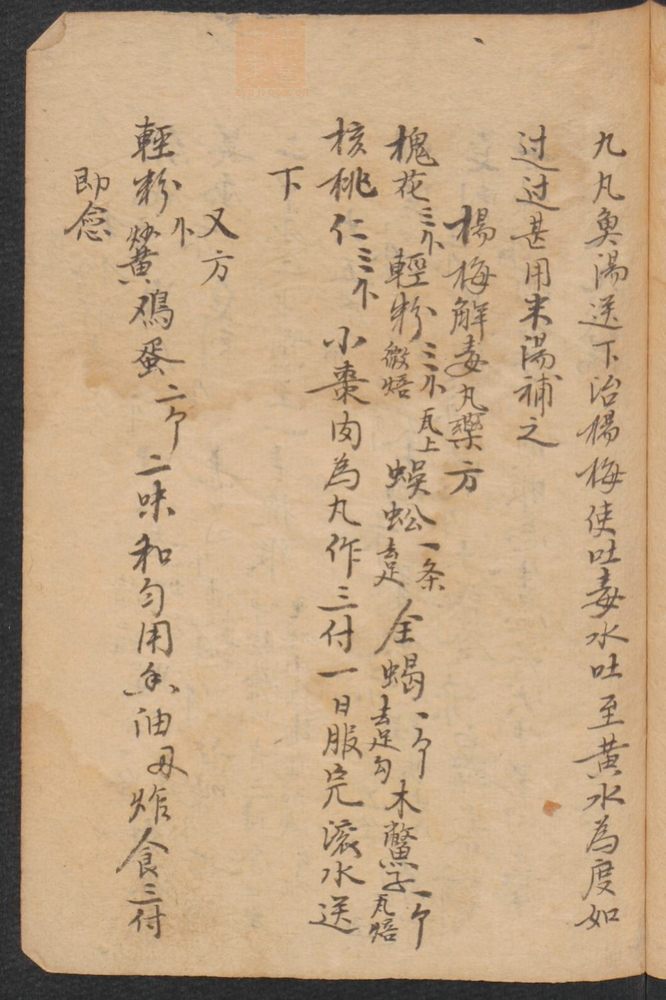 九丸臭湯送下治楊梅使吐毒水吐至黃水為度如
过过甚用米湯補之
楊梅解毒丸藥方
槐花三个輕粉三个瓦上微焙蜈蚣一条去足全蝎一个去足勾木鱉子一个瓦焙
核桃仁三个小棗肉為丸作三付一日服完滚水送
下
又方
輕粉个炒黃鴻蛋二个二味和匀用香油炸食三付
即愈